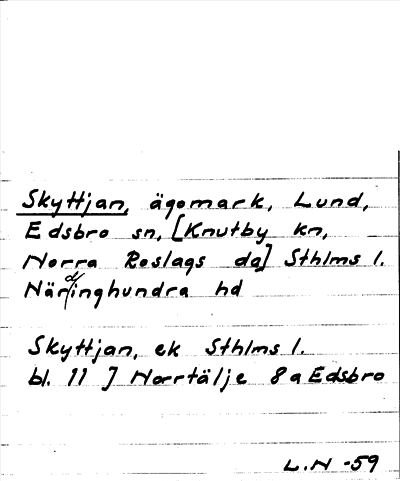 Skyttjan, ägomark, Lund,
Edsbro sn, [Knutby kn,
Norra Roslags da] Sthlms l.
Närdinghundra hd
Skyttjan, ek Sthlms l.
bl. 11 J Norrtälje 8a Edsbro
L.N -59